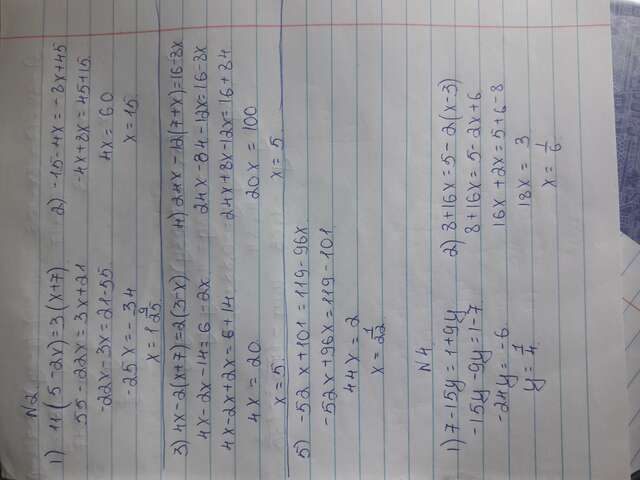 №2
1) 11(5-2x)=3(x+7)
55-22x=3x+21
-22x-3x=21-55
-25x=-34
x=1 9/25
2) -15-4x=-8x+45
-4x+8x=45+15
4x=60
x=15
3) 4x-2(x+7)=2(3-x)
4x-2x-14=6-2x
4x-2x+2x=6+14
4x=20
x=5.
4) 24x-12(7+x)=16-8x
24x-84-12x=16-8x
24x+8x-12x=16+84
20x=100
x=5.
5) -52x+101=119-96x
-52x+96x=119-101
44x=2
x=1/22
№4
1) 7-15y=1+9y
-15y-9y=1-7
-24y=-6
y=1/4
2) 8+16x=5-2(x-3)
8+16x=5-2x+6
16x+2x=5+6-8
18x=3
x=1/6